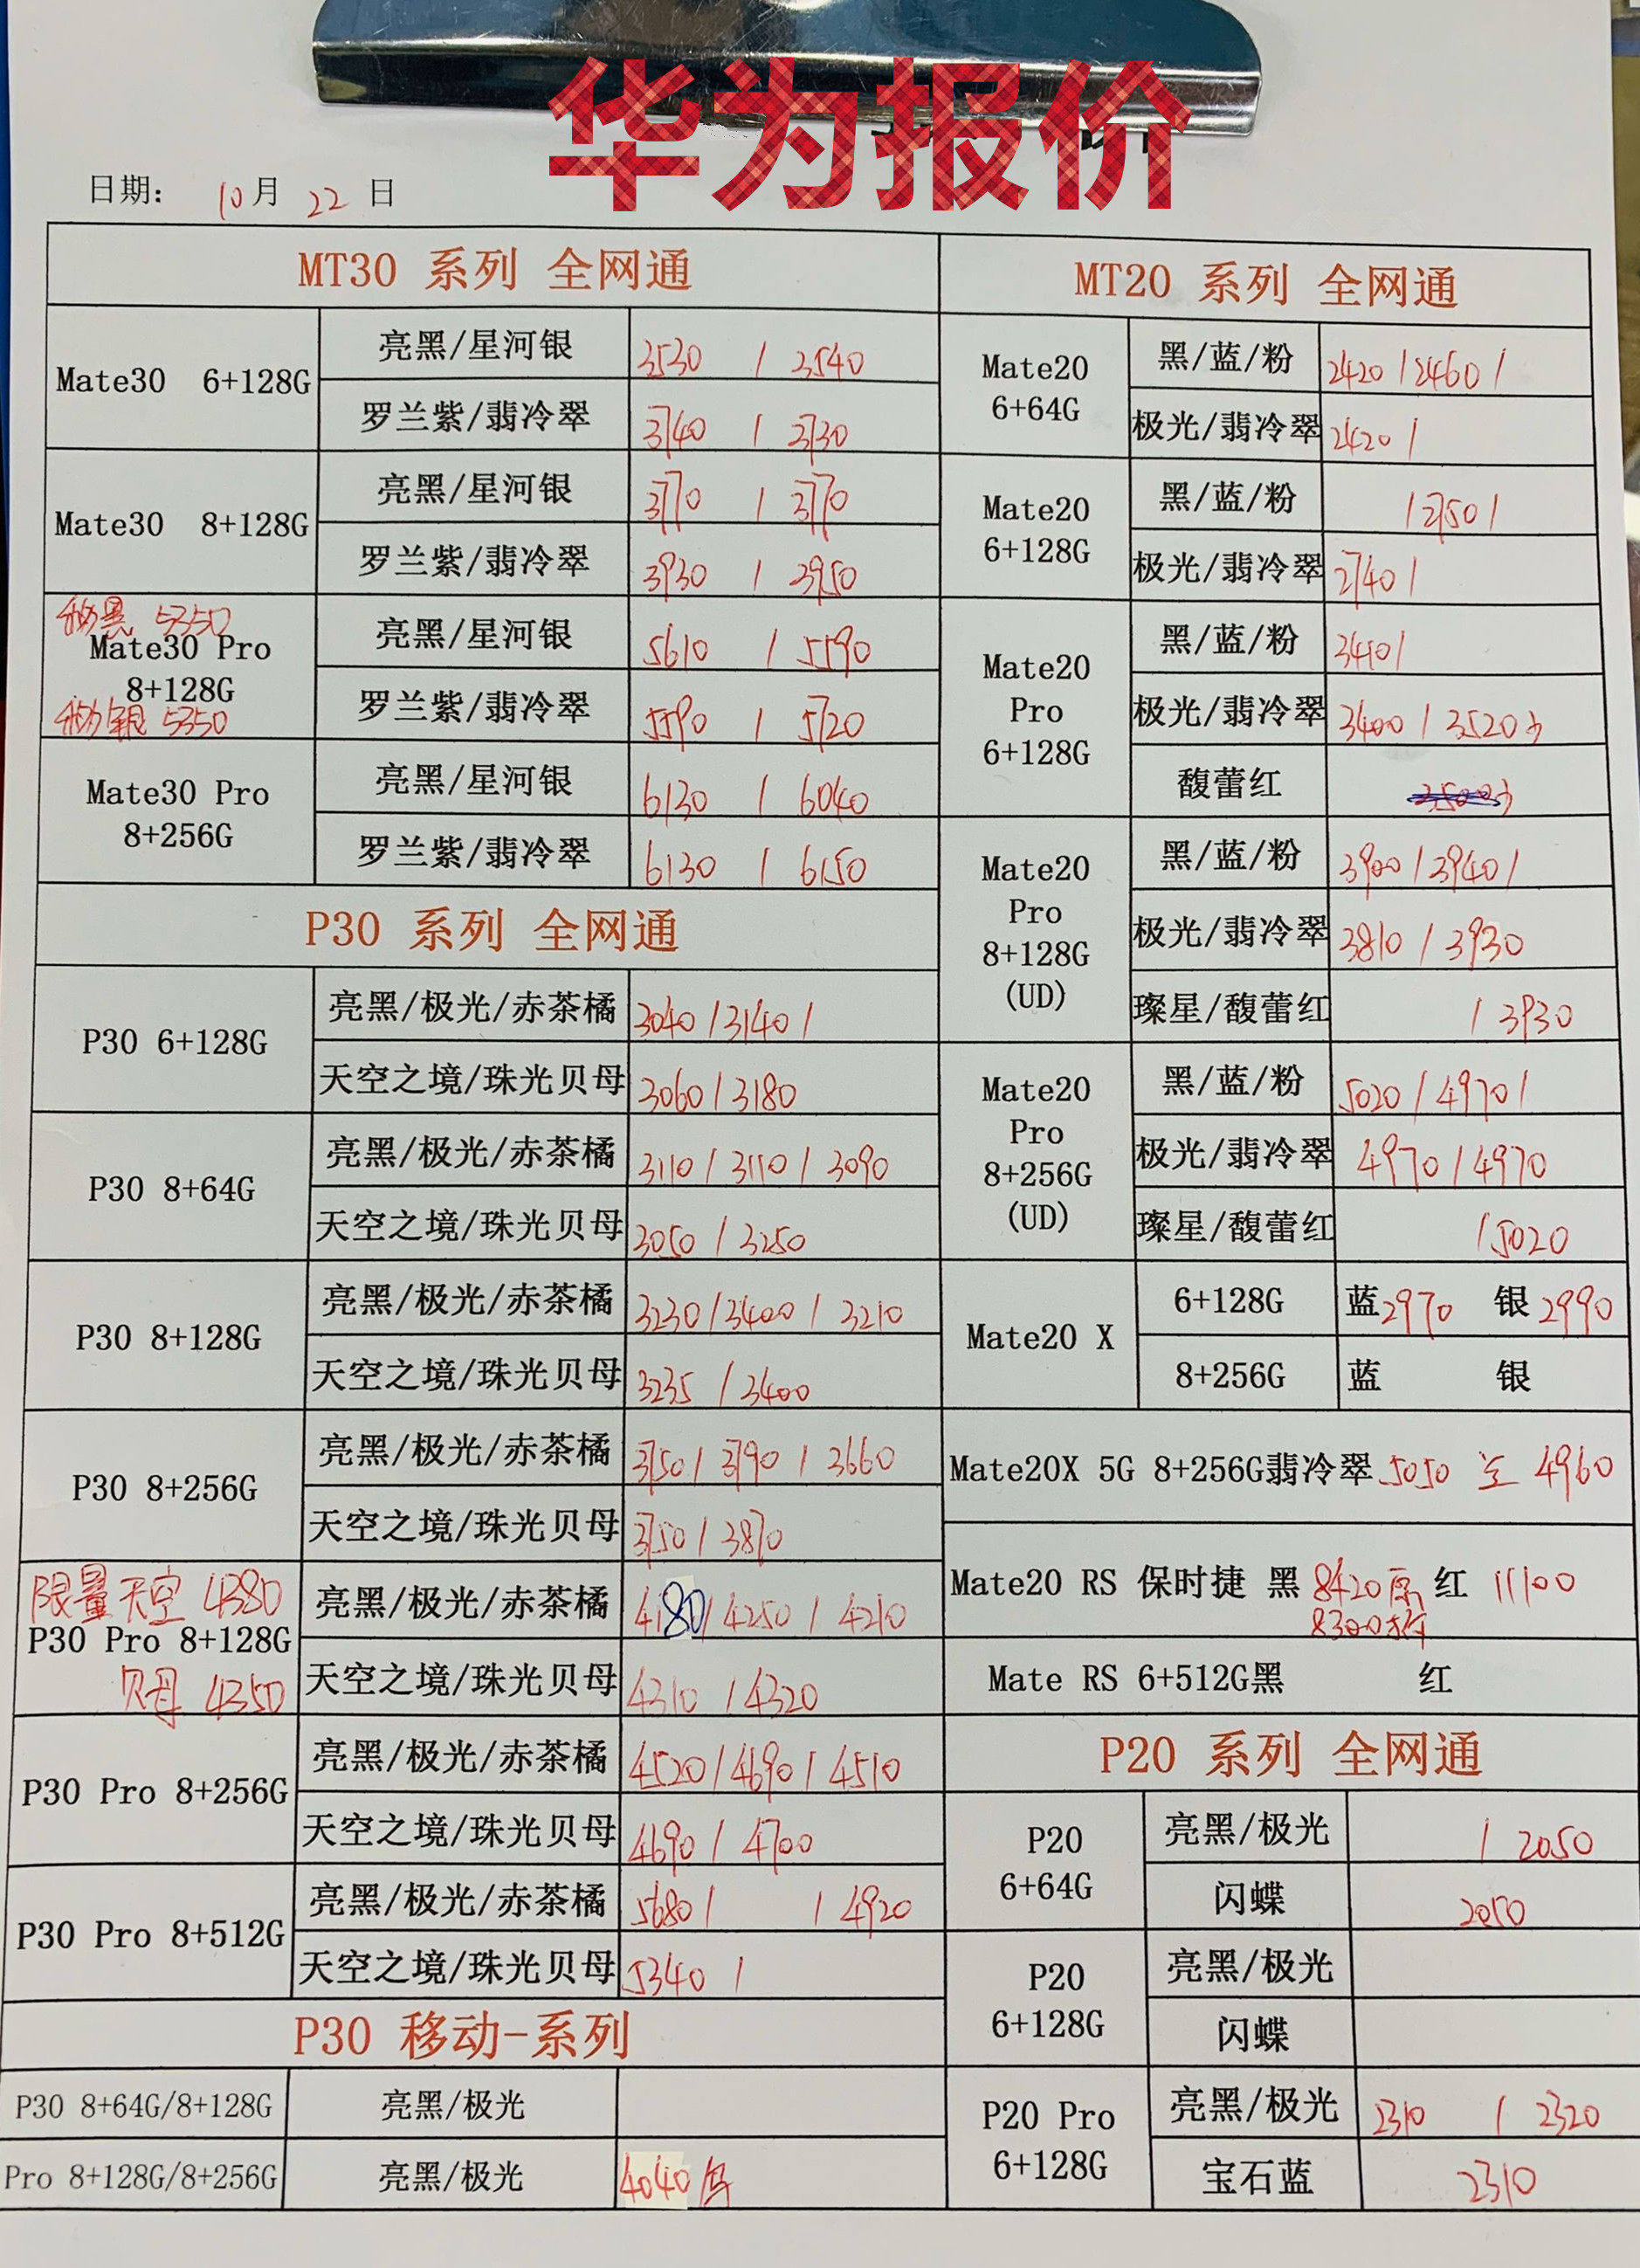 华为报价
日期： 10月 22 日
MT30 系列 全网通
Mate30 6+128G
亮黑/星河银 3530 / 3540
罗兰紫/翡冷翠 3740 / 3730
Mate30 8+128G
亮黑/星河银 3770 / 3770
罗兰紫/翡冷翠 3930 / 3950
移动黑 5350
Mate30 Pro
8+128G
移动银 5350
亮黑/星河银 5610 / 5590
罗兰紫/翡冷翠 5590 / 5720
Mate30 Pro
8+256G
亮黑/星河银 6130 / 6040
罗兰紫/翡冷翠 6130 / 6150
P30 系列 全网通
P30 6+128G
亮黑/极光/赤茶橘 3040 / 3140 /
天空之境/珠光贝母 3060 / 3180
P30 8+64G
亮黑/极光/赤茶橘 3110 / 3110 / 3090
天空之境/珠光贝母 3050 / 3250
P30 8+128G
亮黑/极光/赤茶橘 3230 / 3400 / 3210
天空之境/珠光贝母 3235 / 3400
P30 8+256G
亮黑/极光/赤茶橘 3750 / 3790 / 3660
天空之境/珠光贝母 3750 / 3870
限量天空 4380
P30 Pro 8+128G
贝母 4350
亮黑/极光/赤茶橘 4180 / 4250 / 4210
天空之境/珠光贝母 4310 / 4320
P30 Pro 8+256G
亮黑/极光/赤茶橘 4520 / 4690 / 4510
天空之境/珠光贝母 4690 / 4700
P30 Pro 8+512G
亮黑/极光/赤茶橘 5680 / / 4920
天空之境/珠光贝母 5340 /
P30 移动-系列
P30 8+64G/8+128G 亮黑/极光
Pro 8+128G/8+256G 亮黑/极光 4040
MT20 系列 全网通
Mate20
6+64G
黑/蓝/粉 2420 / 2460 /
极光/翡冷翠 2420 /
Mate20
6+128G
黑/蓝/粉 / 2750 /
极光/翡冷翠 2740 /
Mate20
Pro
6+128G
黑/蓝/粉 3410 /
极光/翡冷翠 3400 / 3520
馥蕾红
Mate20
Pro
8+128G
(UD)
黑/蓝/粉 3900 / 3940 /
极光/翡冷翠 3810 / 3930
璨星/馥蕾红 / 3930
Mate20
Pro
8+256G
(UD)
黑/蓝/粉 5020 / 4970 /
极光/翡冷翠 4970 / 4970
璨星/馥蕾红 / 5020
Mate20 X
6+128G 蓝2970 银2990
8+256G 蓝 银
Mate20X 5G 8+256G翡冷翠 5050 4960
Mate20 RS 保时捷 黑 8420原 红 11100
8300拆
Mate RS 6+512G黑 红
P20 系列 全网通
P20
6+64G
亮黑/极光 / 2050
闪蝶 2050
P20
6+128G
亮黑/极光
闪蝶
P20 Pro
6+128G
亮黑/极光 2310 / 2320
宝石蓝 2310